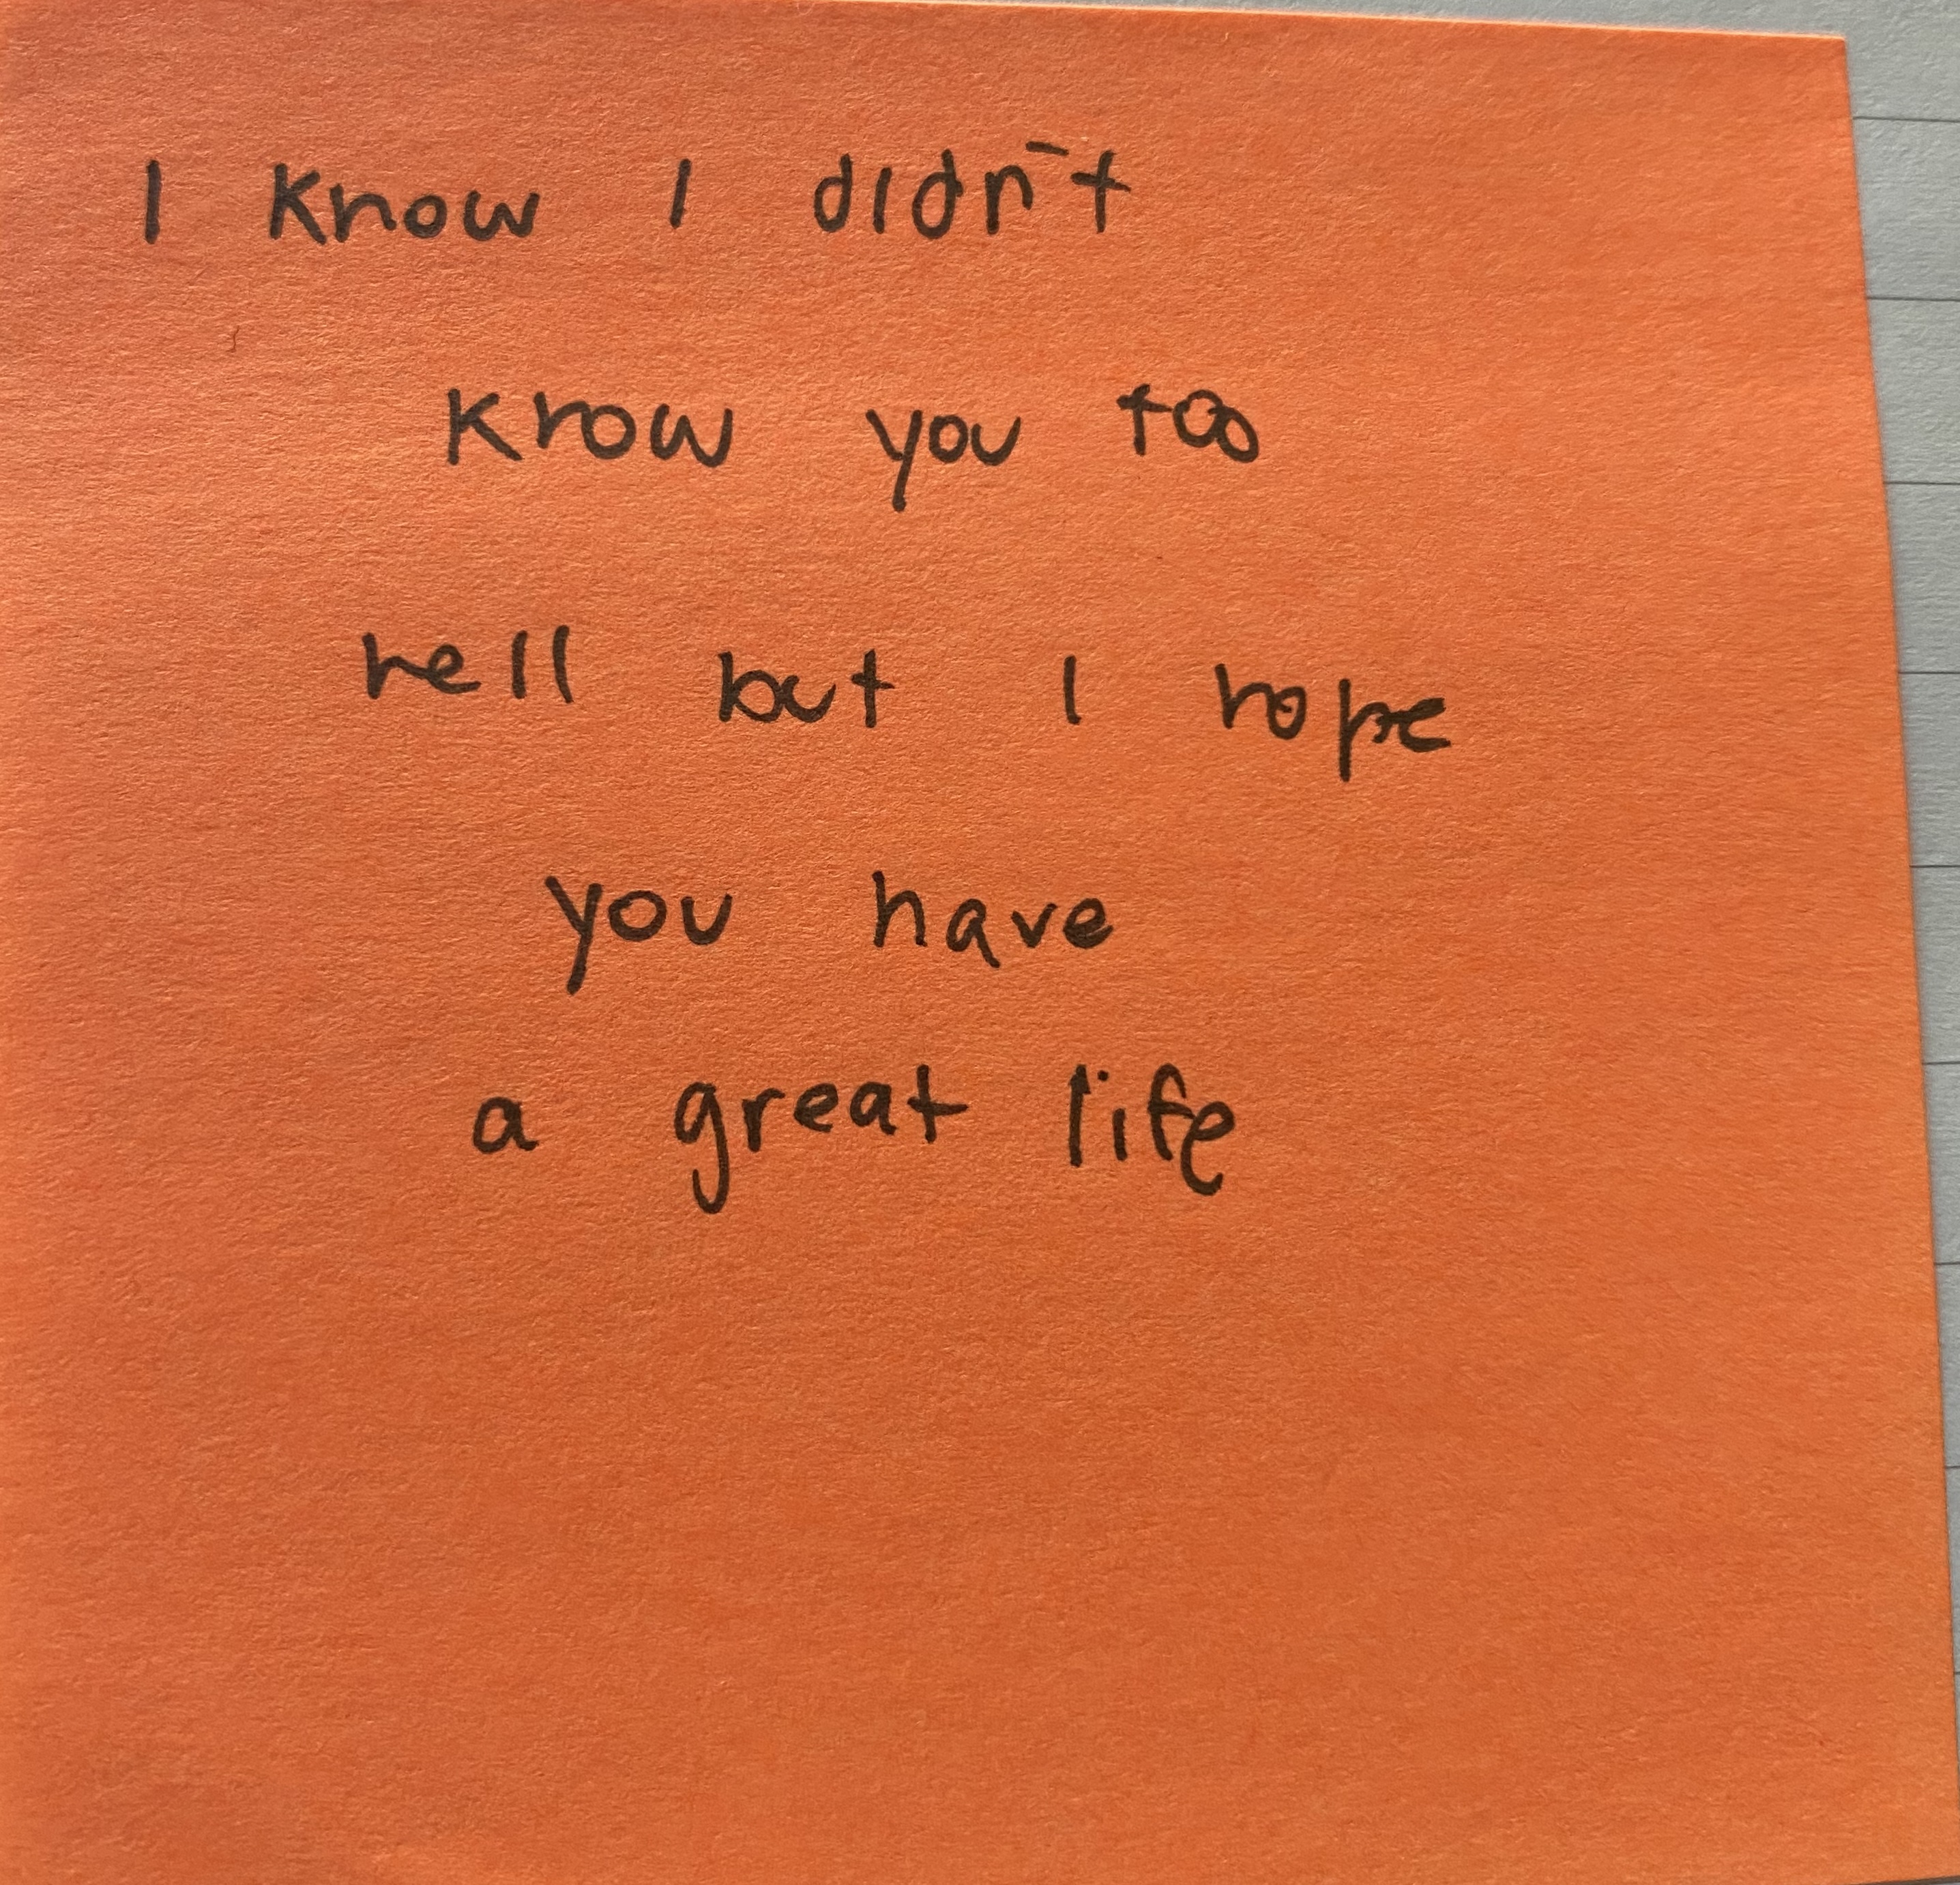 I know I didn't
know you too
hell but I hope
you have
a great life